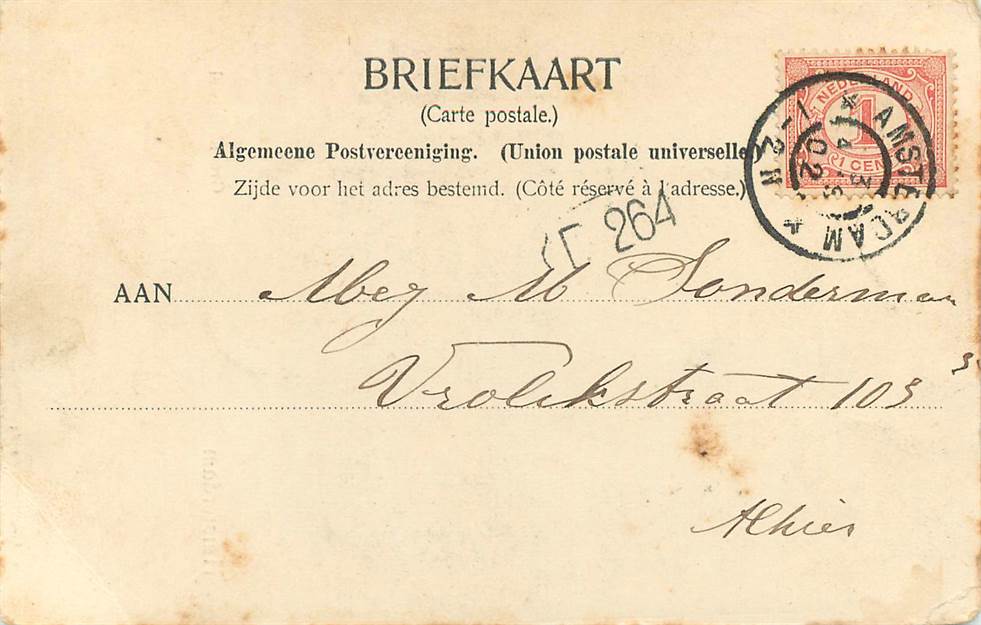 BRIEFKAART
(Carte postale.)
Algemeene Postvereeniging. (Union postale universelle
Zijde voor het adres bestemd. (Côté réservé à l'adresse.)
NEDERLAND
1
CENT
AMSTERDAM
1-2 N
02
264
AAN Mej M Sonderman
Vrolikstraat 103 3
Alhier